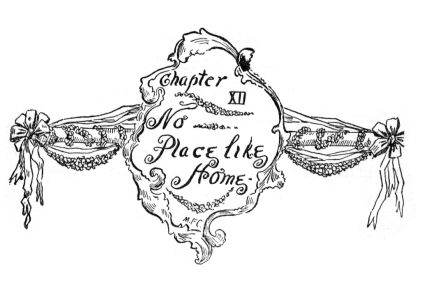 Chapter
XII
No
Place like
Home.
M.F.C